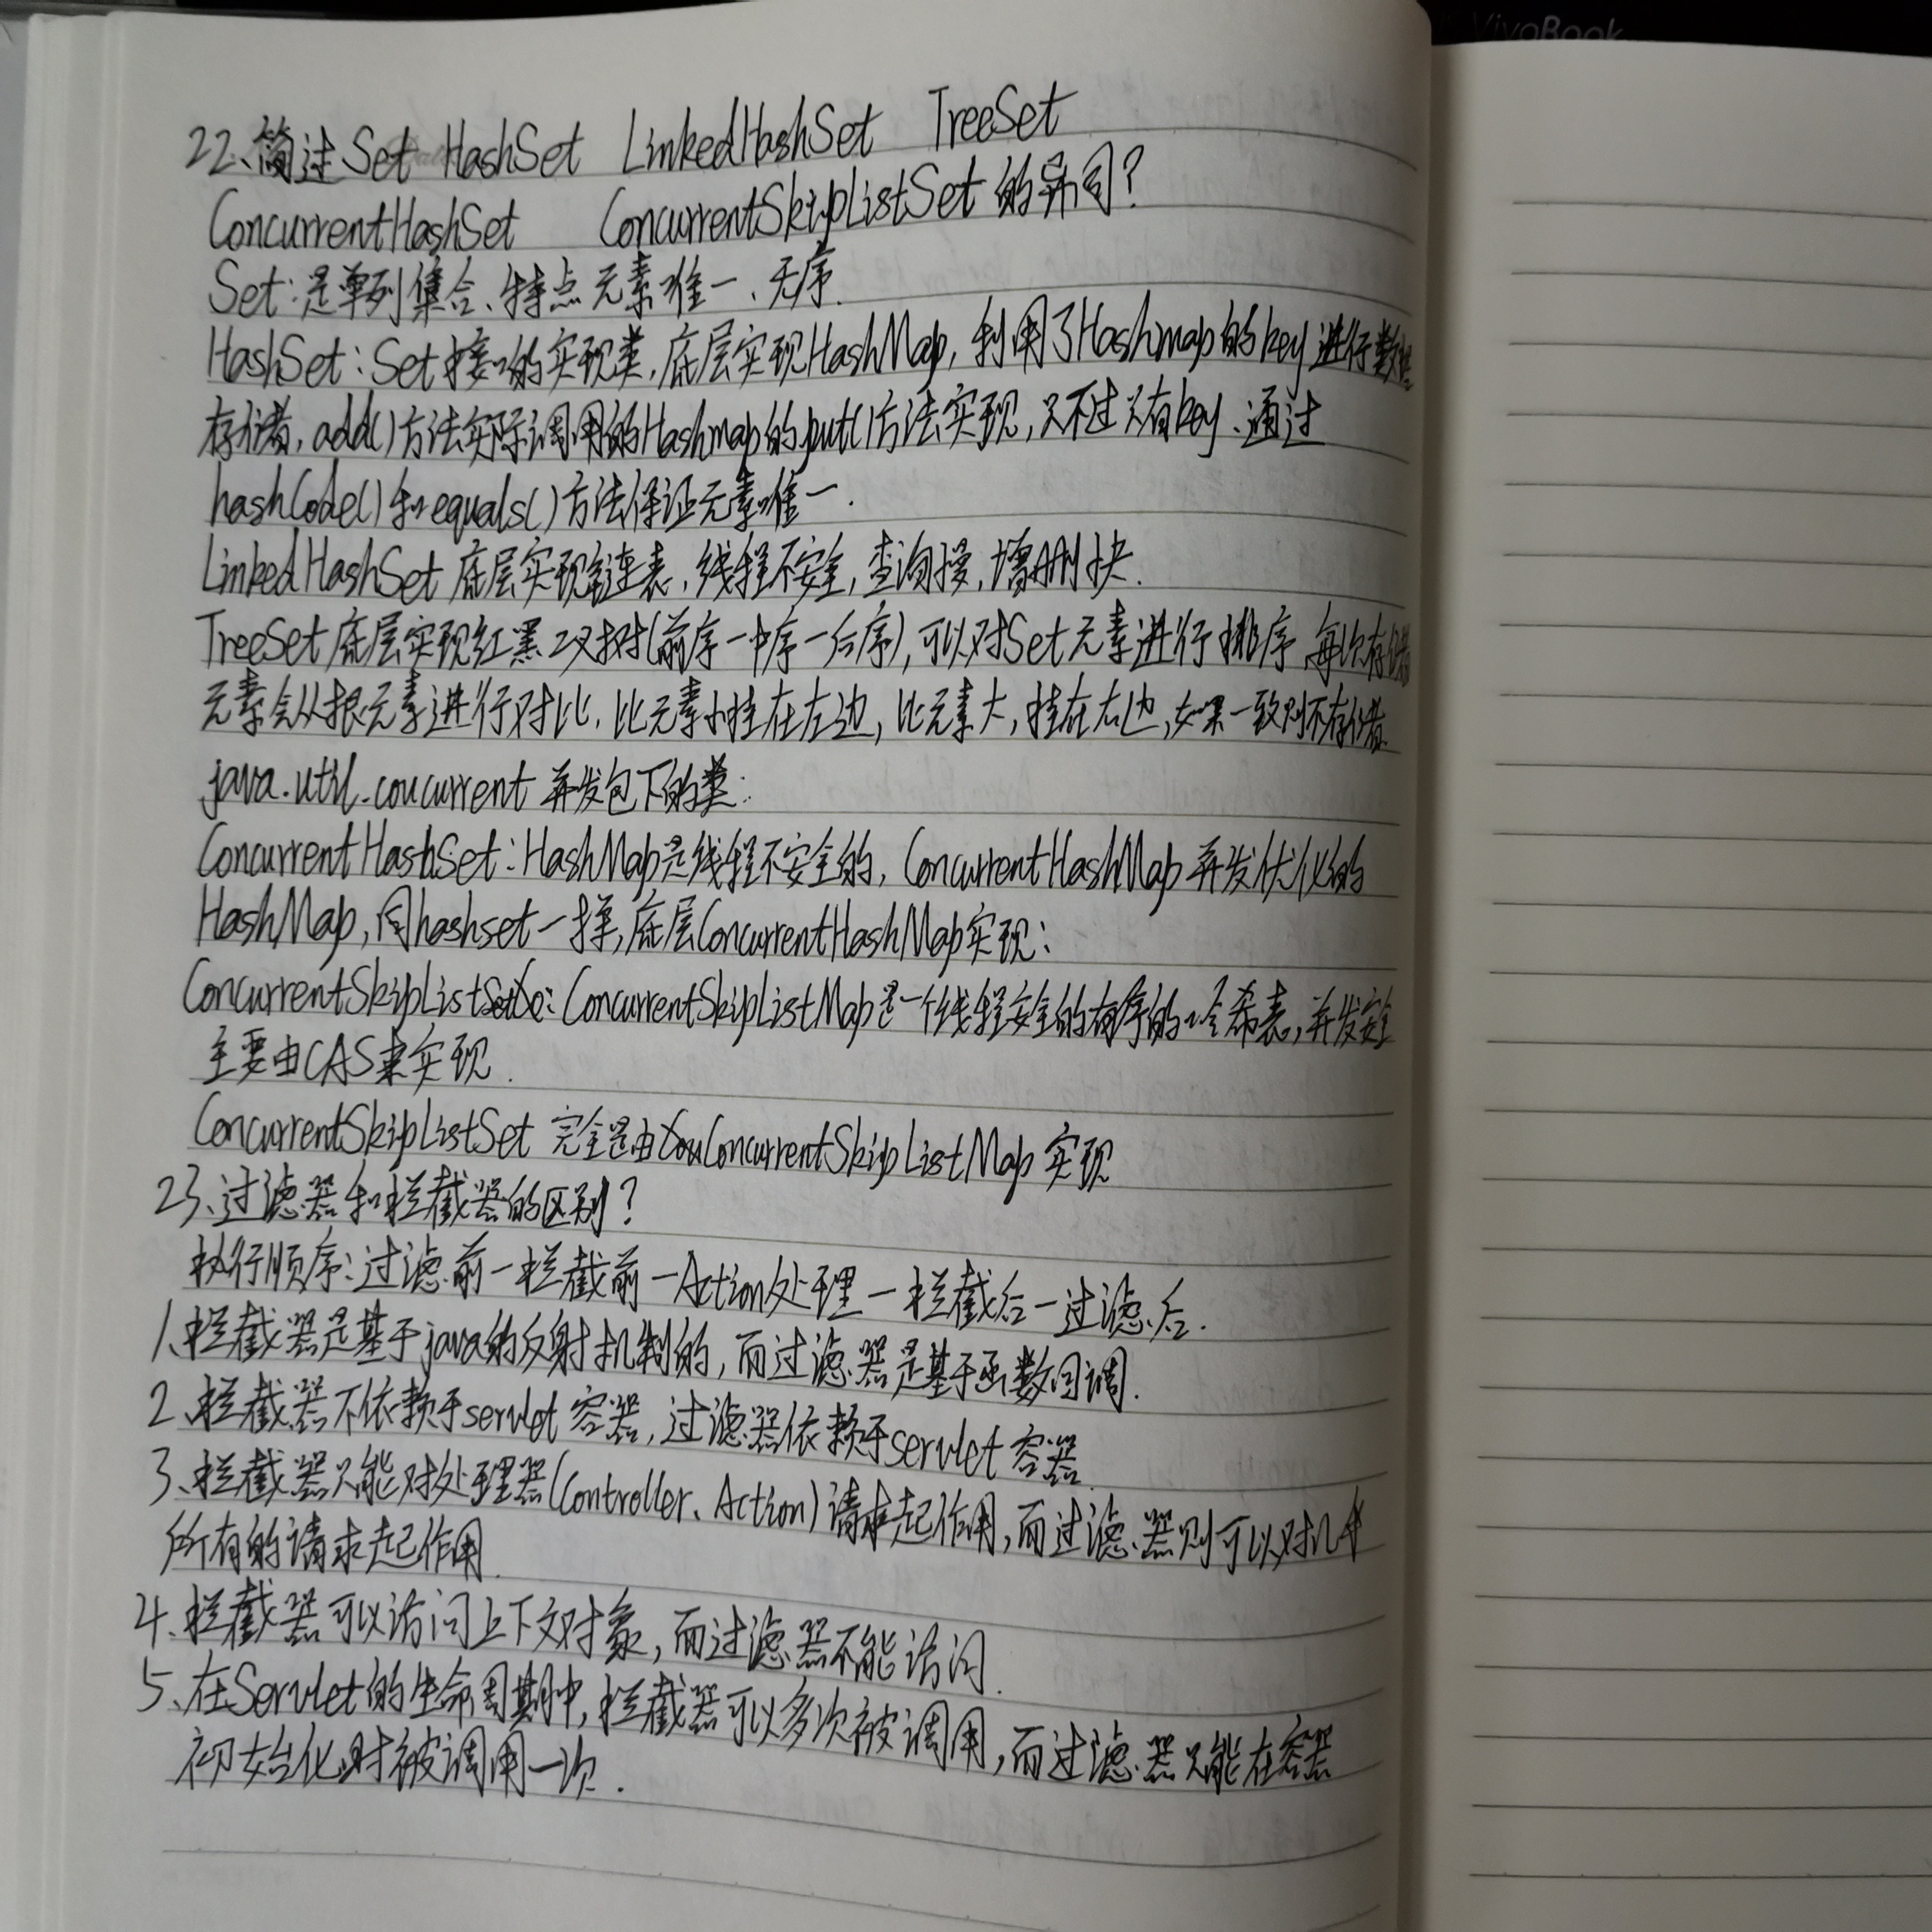 VivoBook
22、简述Set HashSet LinkedHashSet TreeSet
ConcurrentHashSet ConcurrentSkipListSet的异同?
Set:是单列集合、特点元素唯一、无序.
HashSet:Set接口的实现类,底层实现HashMap,利用了Hashmap的key进行数据
存储,add()方法实际调用的Hashmap的put()方法实现,只不过只有key、通过
hashCode()和equals()方法保证元素唯一.
LinkedHashSet底层实现链表,线程不安全,查询慢,增删快.
TreeSet底层实现红黑二叉树(前序一中序一后序),可以对Set元素进行排序,每次存储
元素会从根元素进行对比,比元素小挂在左边,比元素大,挂在右边,如果一致则不存储
java.util.coucurrent并发包下的类:
ConcurrentHashSet:HashMap是线程不安全的,ConcurrentHashMap并发优化的
HashMap,同hashset一样,底层ConcurrentHashMap实现:
ConcurrentSkipListSet:ConcurrentSkipListMap是一个线程安全的有序的哈希表,并发安全
主要由CAS来实现.
ConcurrentSkipListSet 完全是由ConcurrentSkipListMap实现
23、过滤器和拦截器的区别?
执行顺序:过滤前一拦截前一Action处理一拦截后一过滤后.
1、拦截器是基于java的反射机制的,而过滤器是基于函数回调.
2、拦截器不依赖于servlet容器,过滤器依赖于servlet容器
3、拦截器只能对处理器(Controller、Action)请求起作用,而过滤器则可以对几乎
所有的请求起作用.
4、拦截器可以访问上下文对象,而过滤器不能访问.
5、在Servlet的生命周期中,拦截器可以多次被调用,而过滤器只能在容器
初始化时被调用一次.